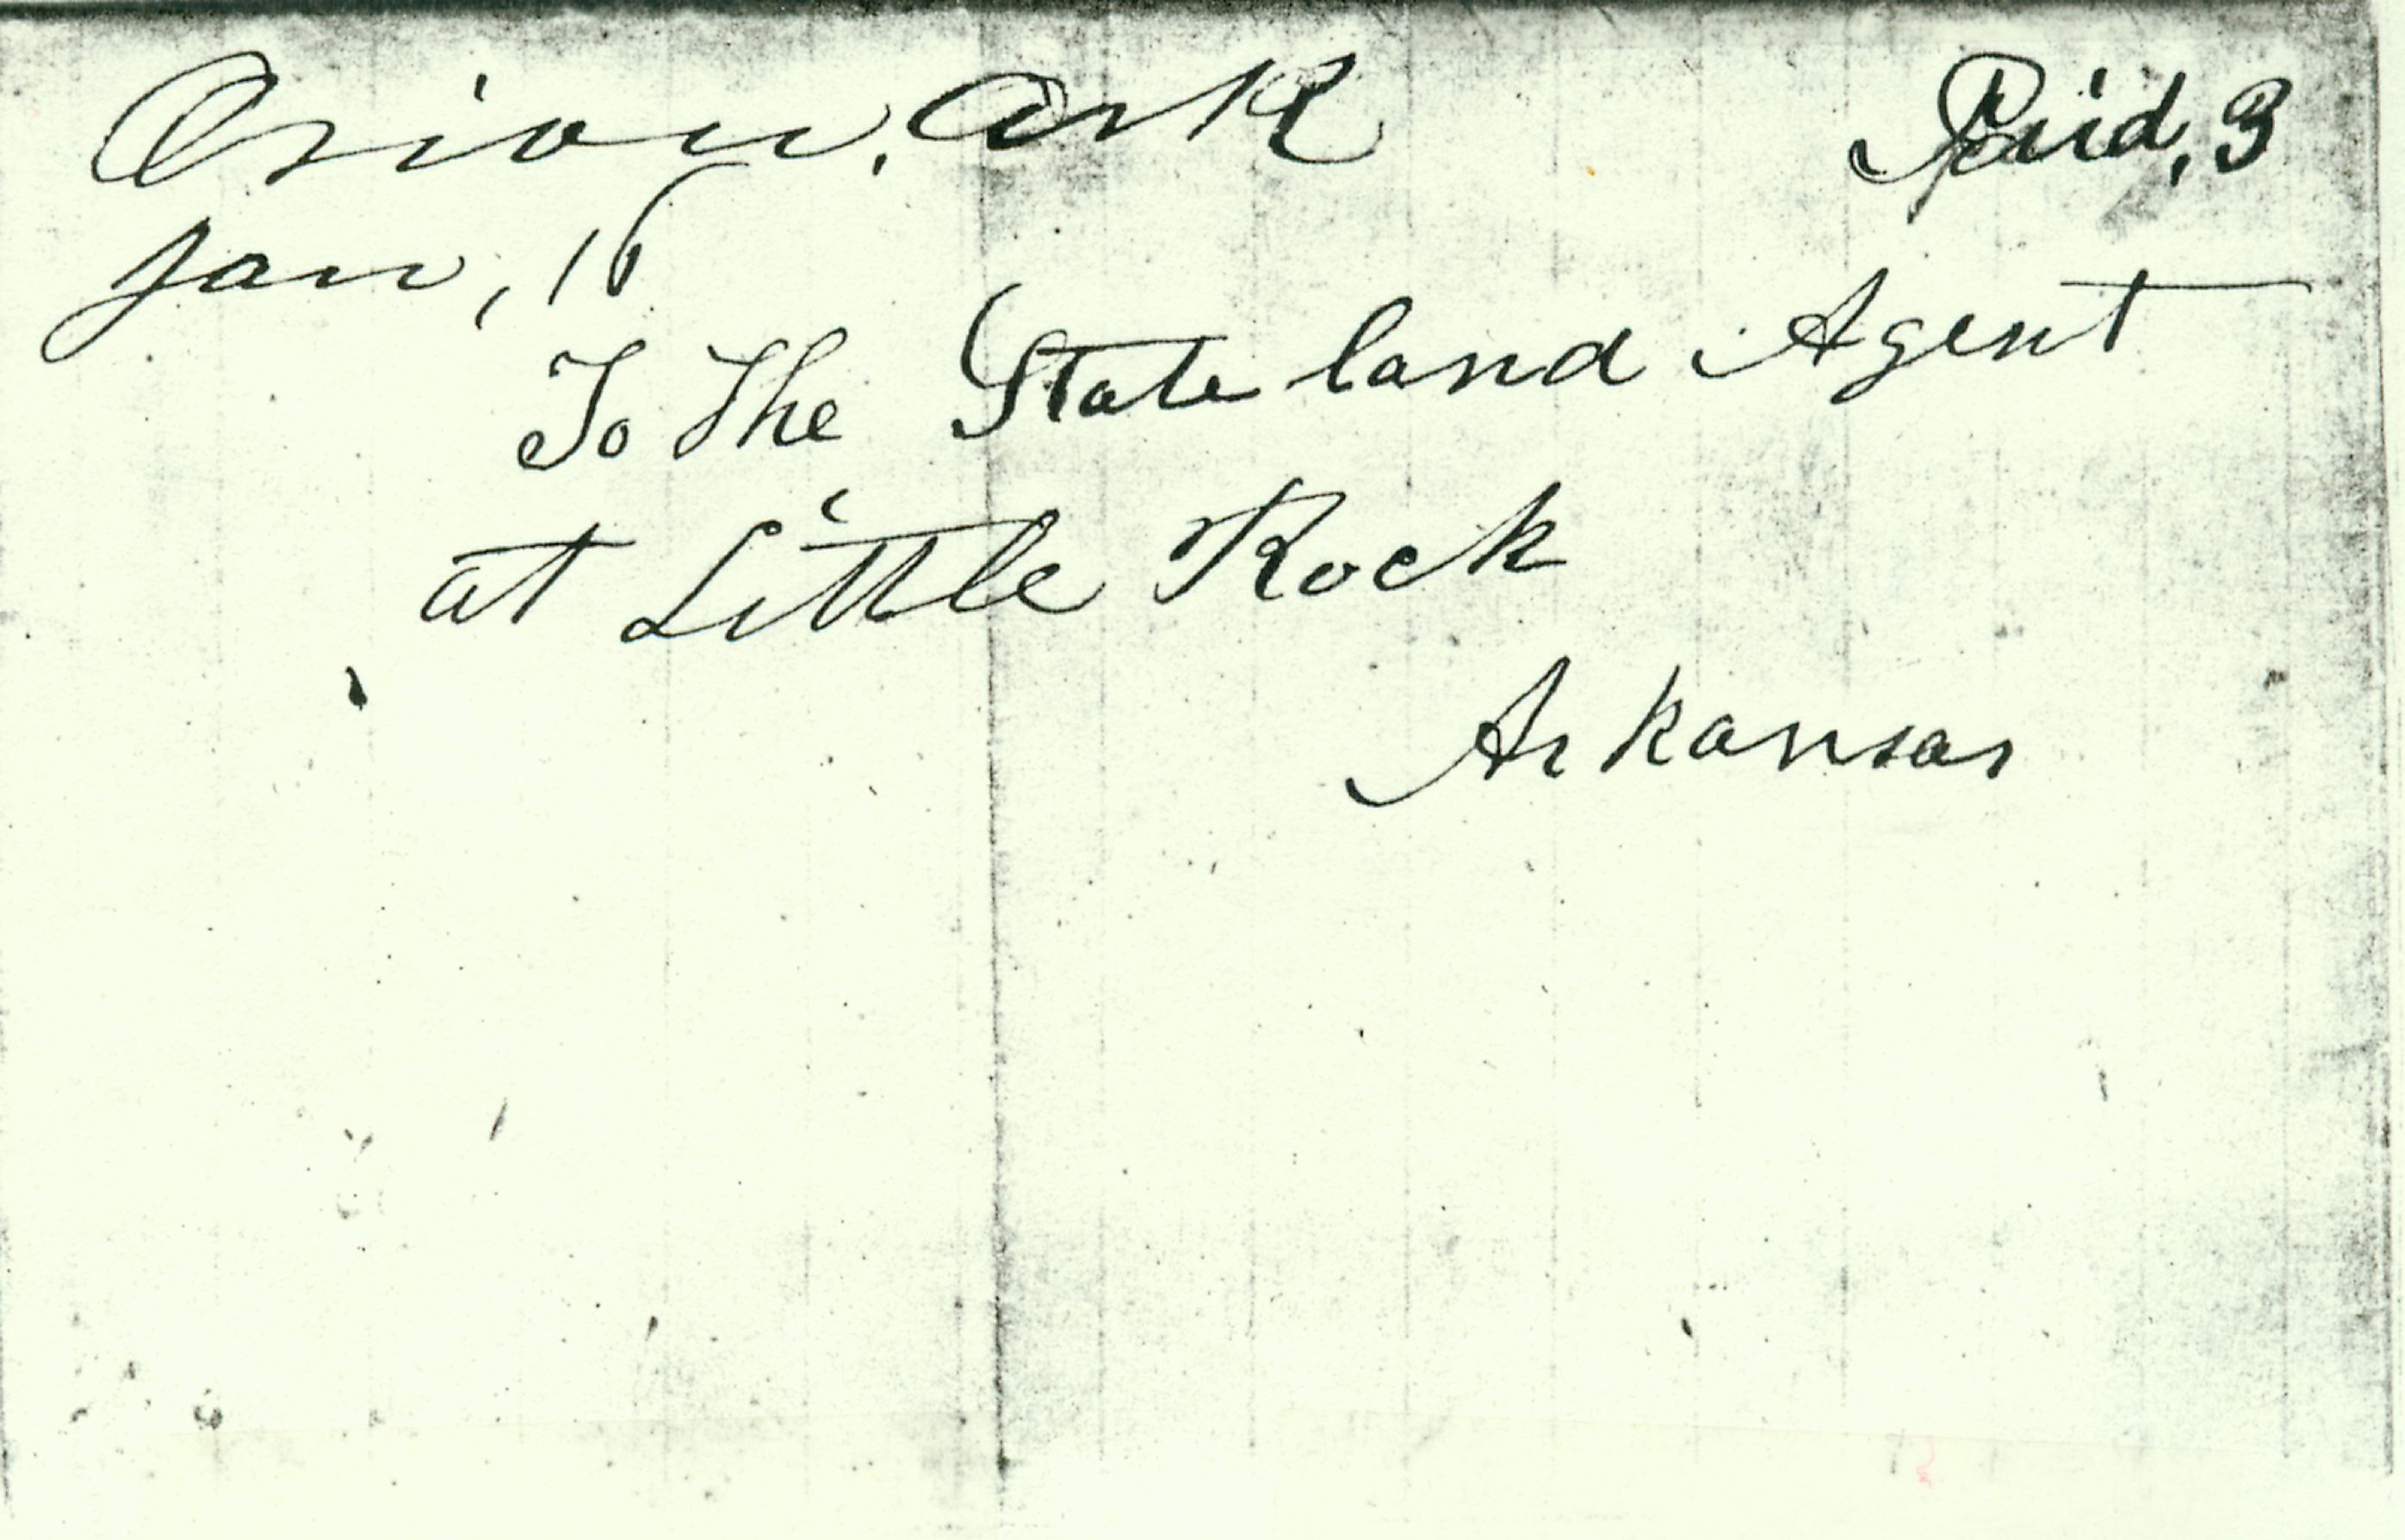 Orion, Ark
Paid, 3
Jan, 16
To The State land Agent
at Little Rock
Arkansas